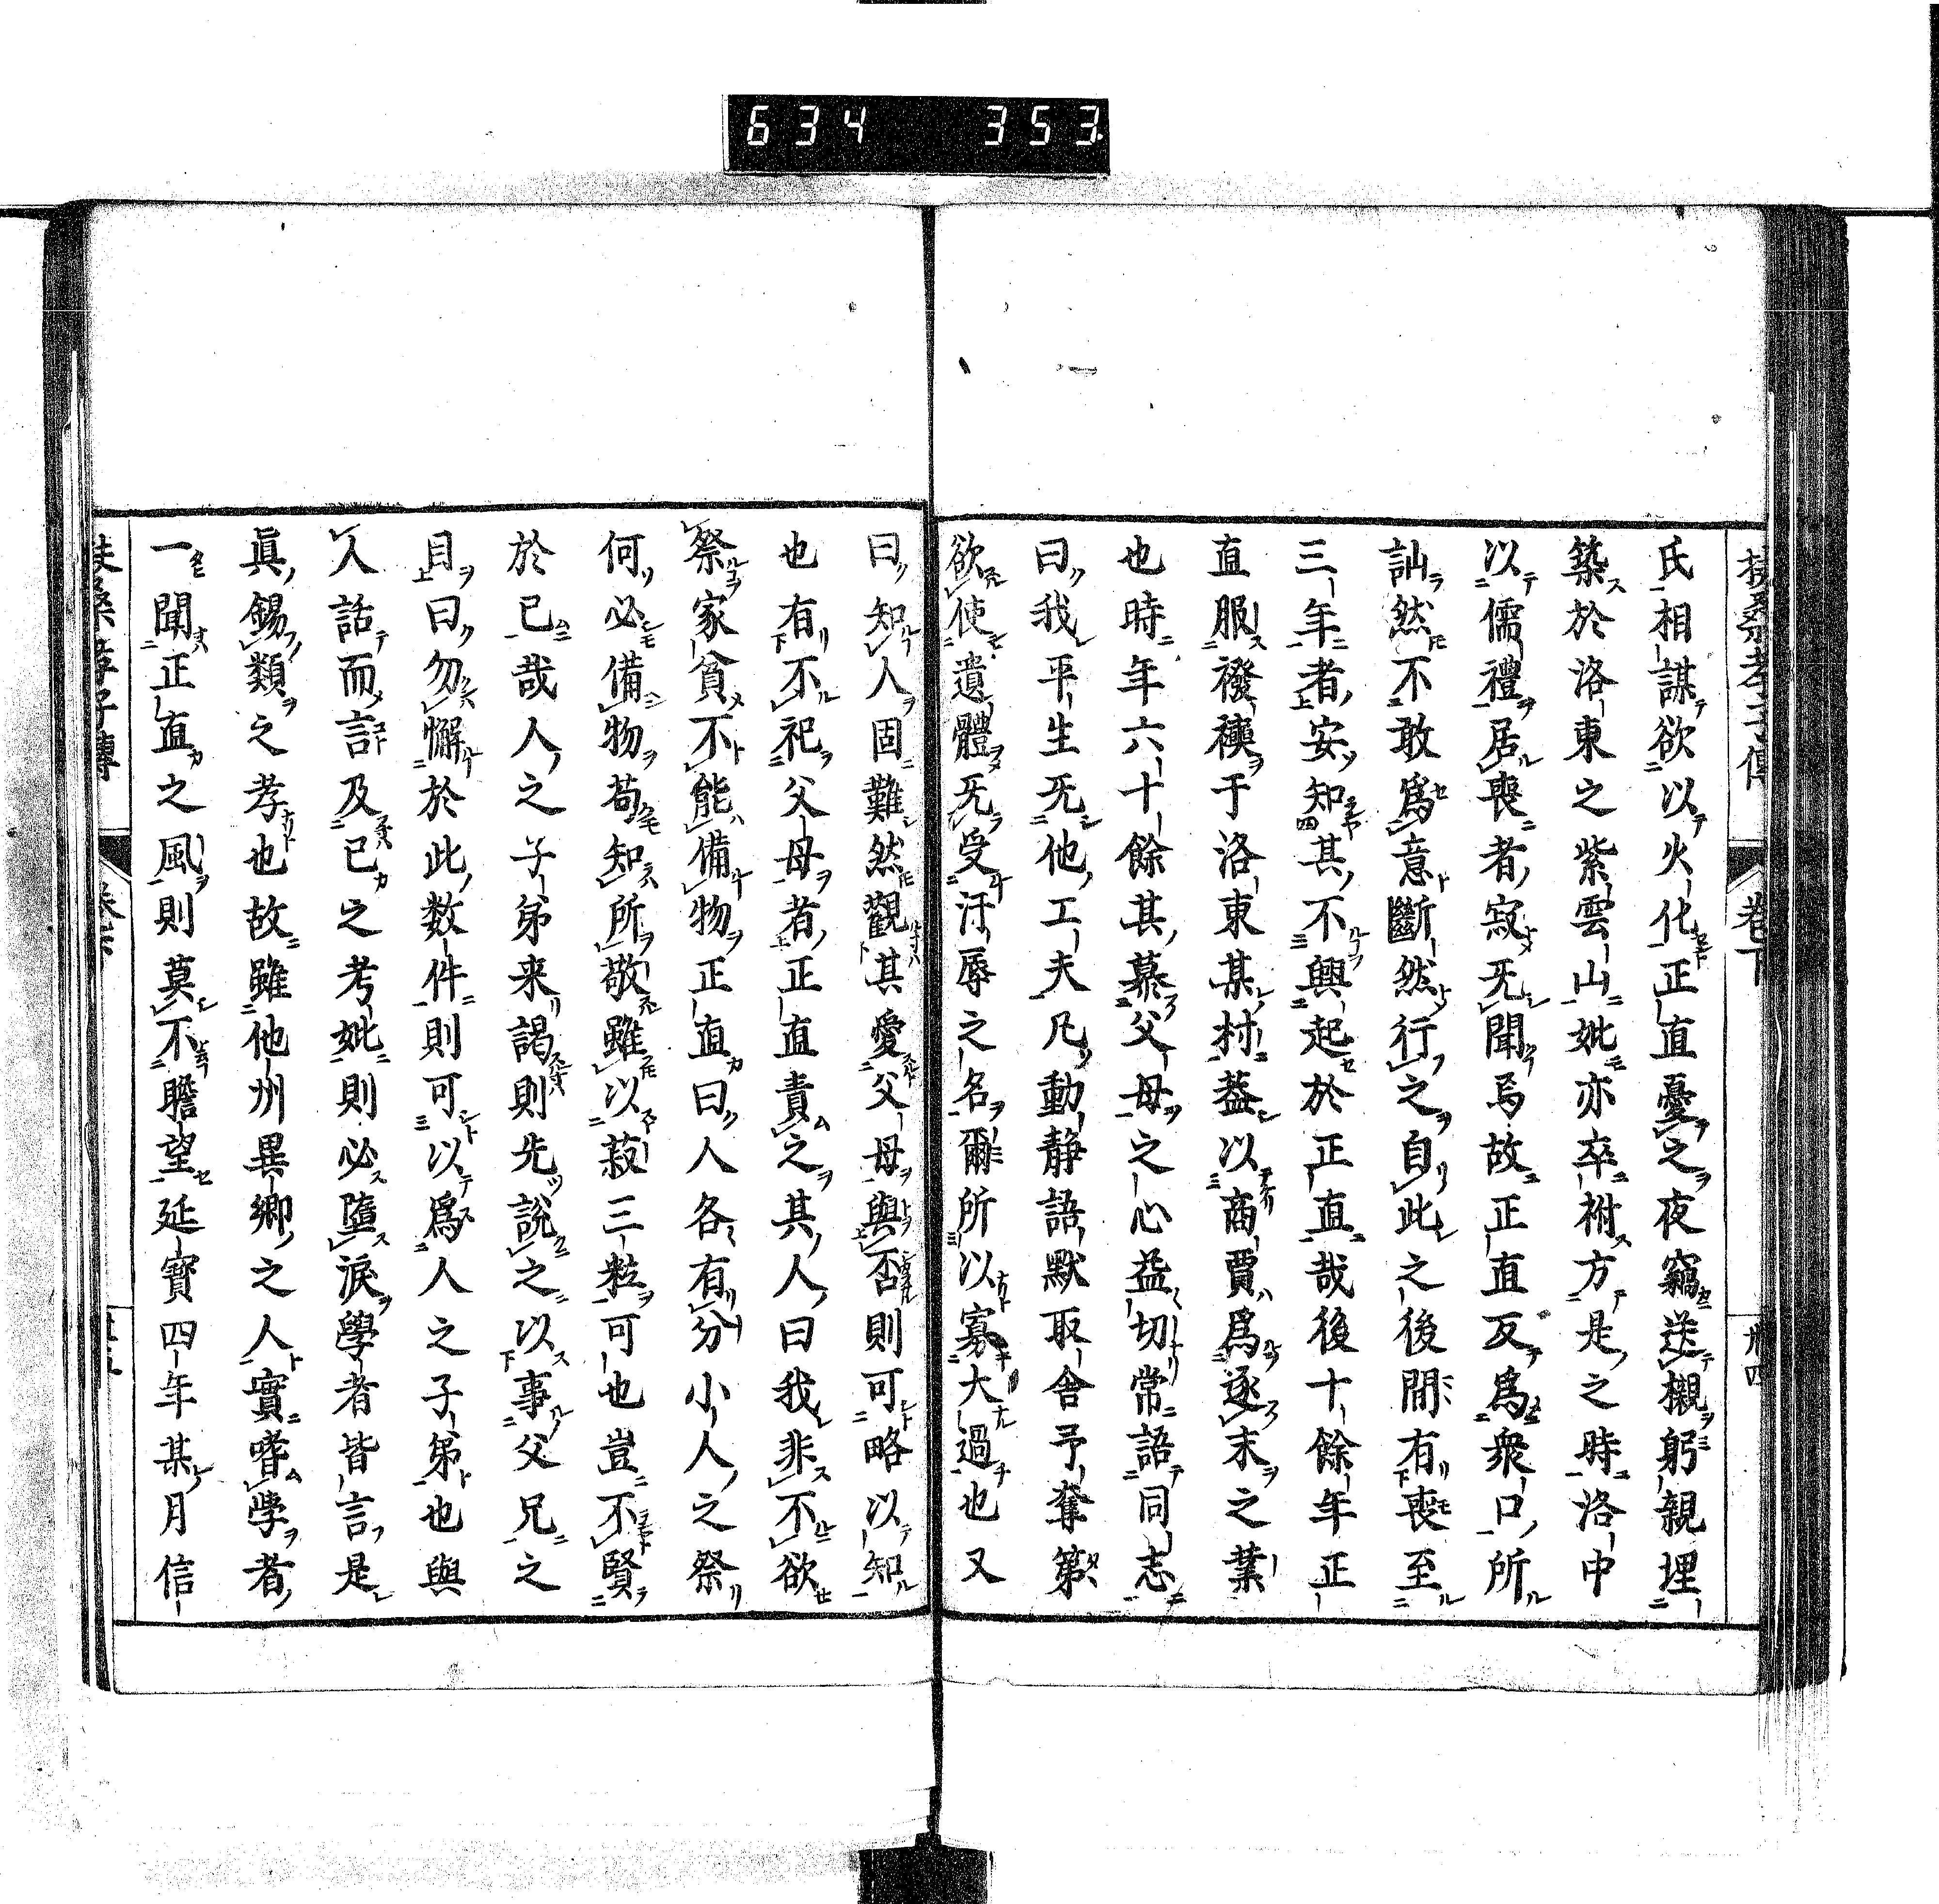 634 353
扶桑孝子傳 卷下 卅四
氏相謀欲以火化正直憂之夜竊送櫬躬親埋
築於洛東之紫雲山妣亦卒祔方是之時洛中
以儒禮居喪者寂无聞焉故正直反爲衆口所
訕然不敢爲意斷然行之自此之後間有喪至
三年者安知其不興起於正直哉後十餘年正
直服襏襫于洛東某村蓋以商賈爲逐末之業
也時年六十餘其慕父母之心益切常語同志
曰我平生无他工夫凡動靜語默取舍予奪第
欲使遺體无受汙辱之名爾所以寡大過也又
曰知人固難然觀其愛父母與否則可略以知
也有不祀父母者正直責之其人曰我非不欲
祭家貧不能備物正直曰人各有分小人之祭
何必備物苟知所敬雖以菽三粒可也豈不賢
於已哉人之子弟来謁則先說之以事父兄之
目曰勿懈於此数件則可以爲人之子弟也與
人話而言及已之考妣則必墮淚學者皆言是
眞錫類之孝也故雖他州異鄉之人實嗜學者
一聞正直之風則莫不瞻望延寶四年某月信
扶桑孝子傳